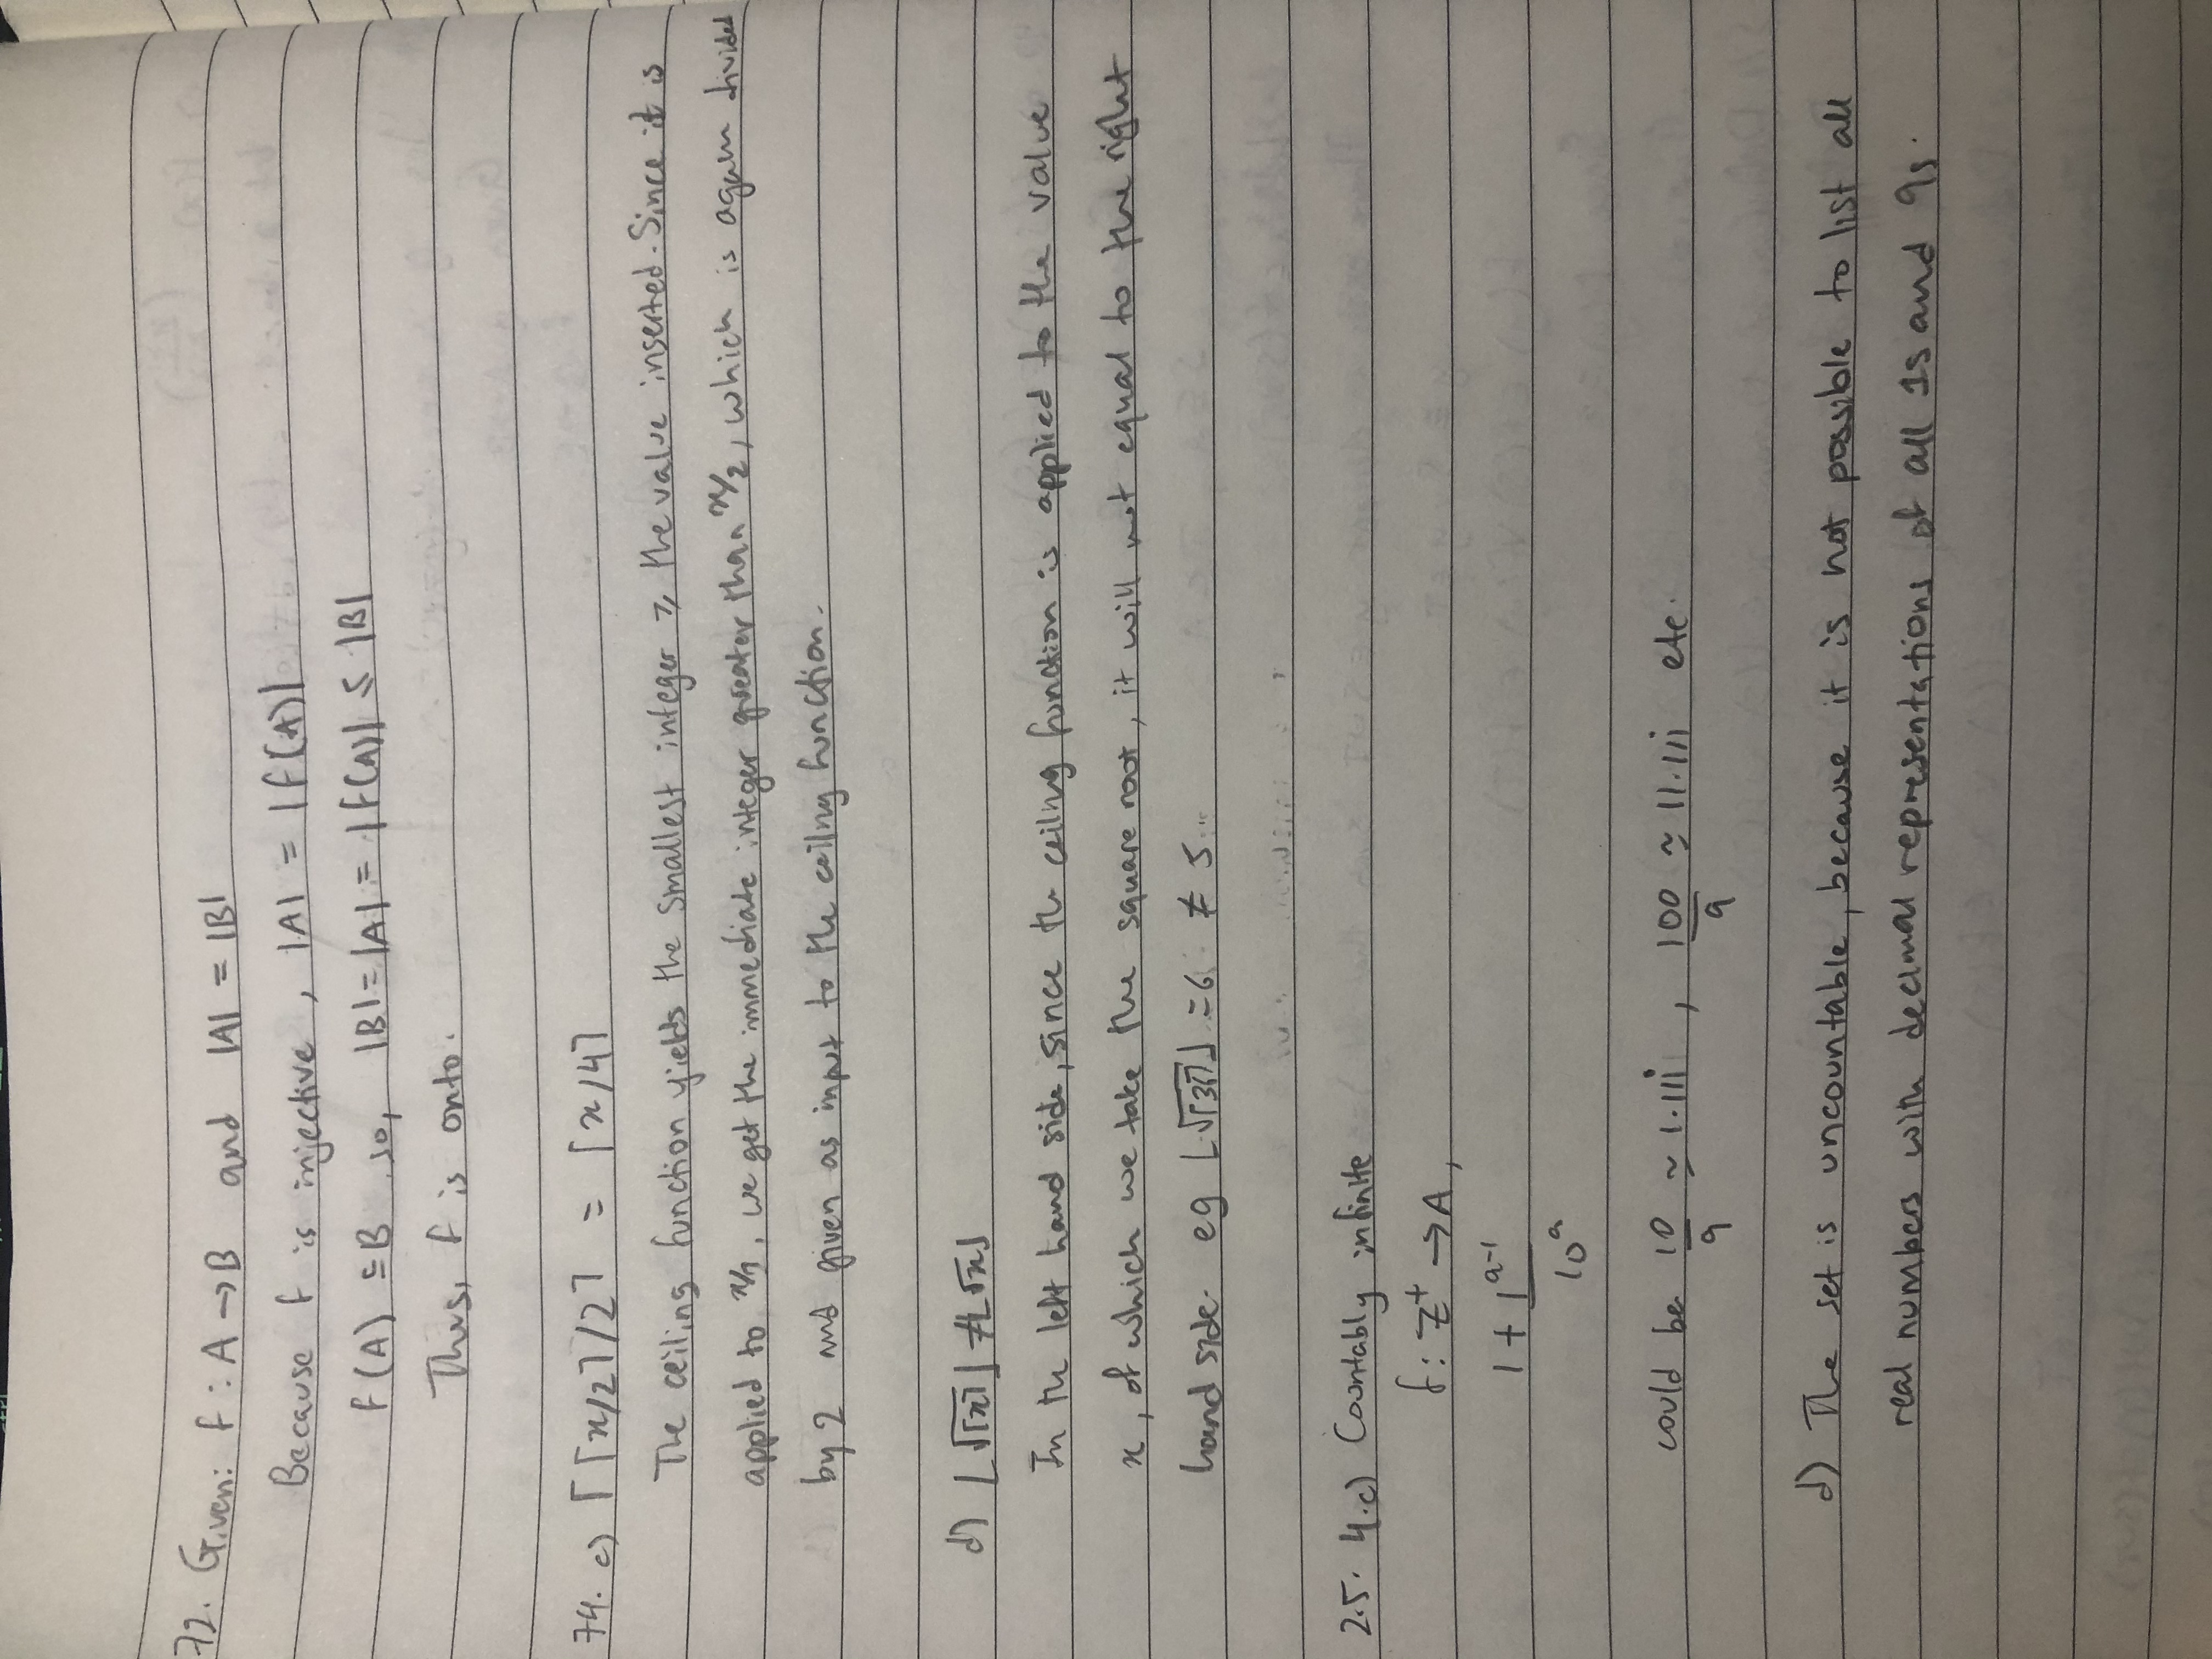 72. Given: f : A → B and |A| = |B|
Because f is injective, |A| = |f(A)|
f(A) ⊆ B so, |B| = |A| = |f(A)| ≤ |B|
Thus, f is onto.
74. c) ⌈⌈x/2⌉/2⌉ = ⌈x/4⌉
The ceiling function yields the smallest integer ≥ the value inserted. Since it is
applied to x/2, we get the immediate integer greater than x/2, which is again divided
by 2 and given as input to the ceiling function.
d) ⌊√⌈x⌉⌋ ≠ ⌊√x⌋
In the left hand side, since the ceiling function is applied to the value
x, of which we take the square root, it will not equal to the right
hand side. eg = 6 ≠ 5..
2.5. 4.c) Countably infinite
f: Z⁺ → A,
1 + 1ᵃ⁻¹
10ᵃ
could be 10/9 ≃ 1.111̇, 100/9 ≃ 11.111̇ etc.
d) The set is uncountable, because it is not possible to list all
real numbers with decimal representations of all 1s and 9s.